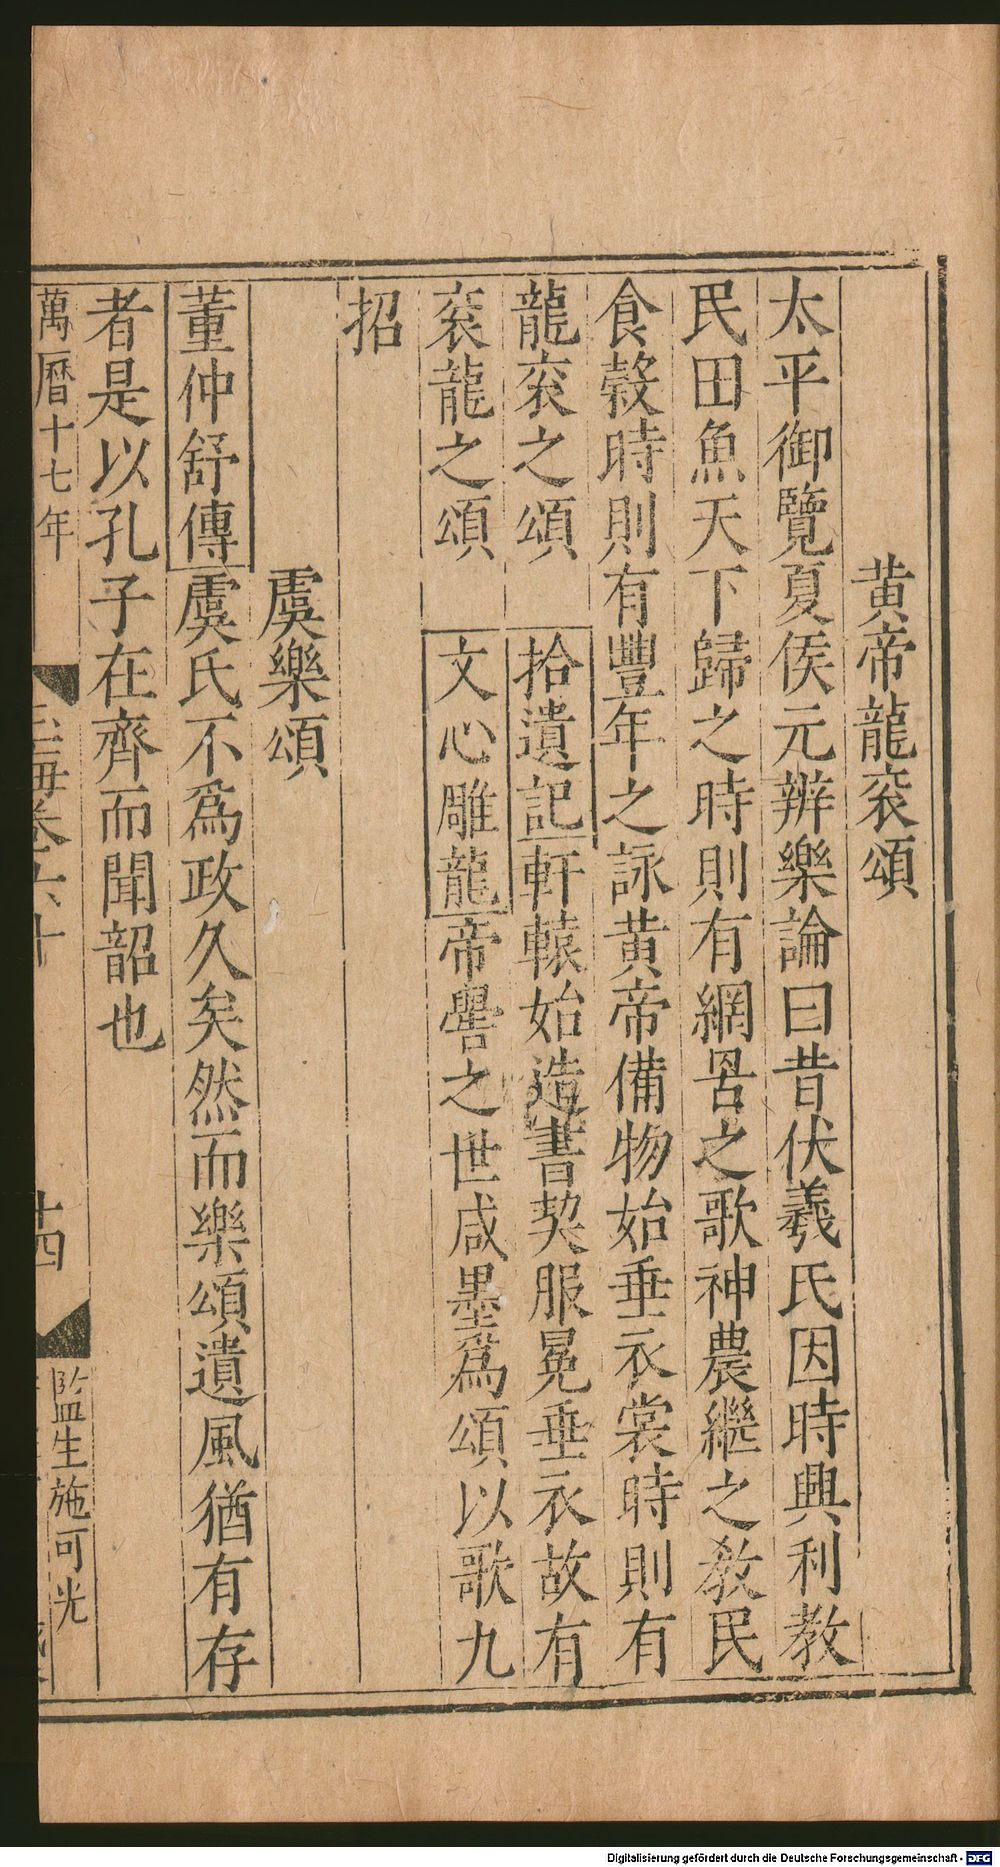 黄帝龍衮頌
太平御覽夏侯元辨樂論曰昔伏羲氏因時興利教
民田魚天下歸之時則有網罟之歌神農繼之教民
食穀時則有豐年之詠黄帝備物始垂衣裳時則有
龍衮之頌 拾遺記軒轅始造書契服冕垂衣故有
衮龍之頌 文心雕龍帝嚳之世咸墨爲頌以歌九
招
虞樂頌
董仲舒傳虞氏不爲政久矣然而樂頌遺風猶有存
者是以孔子在齊而聞韶也
萬曆十七年
玉海卷六十
十四
監生施可光
Digitalisierung gefördert durch die Deutsche Forschungsgemeinschaft - DFG